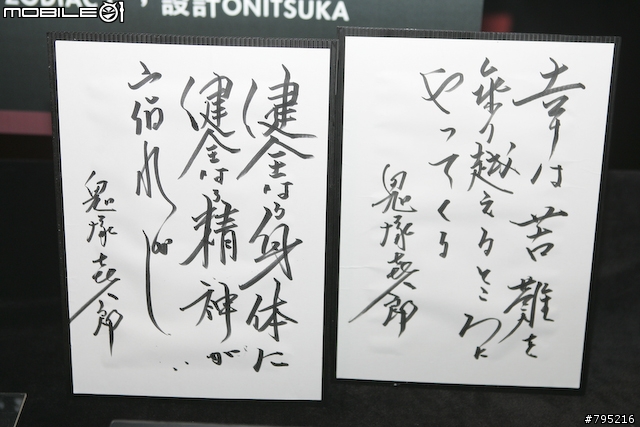 ，設計ONITSUKA
MOBILE01
幸は苦難を
乗り越えるところに
やってくる
鬼塚喜八郎
健全なる身体に
健全なる精神が
鬼塚喜八郎
#795216